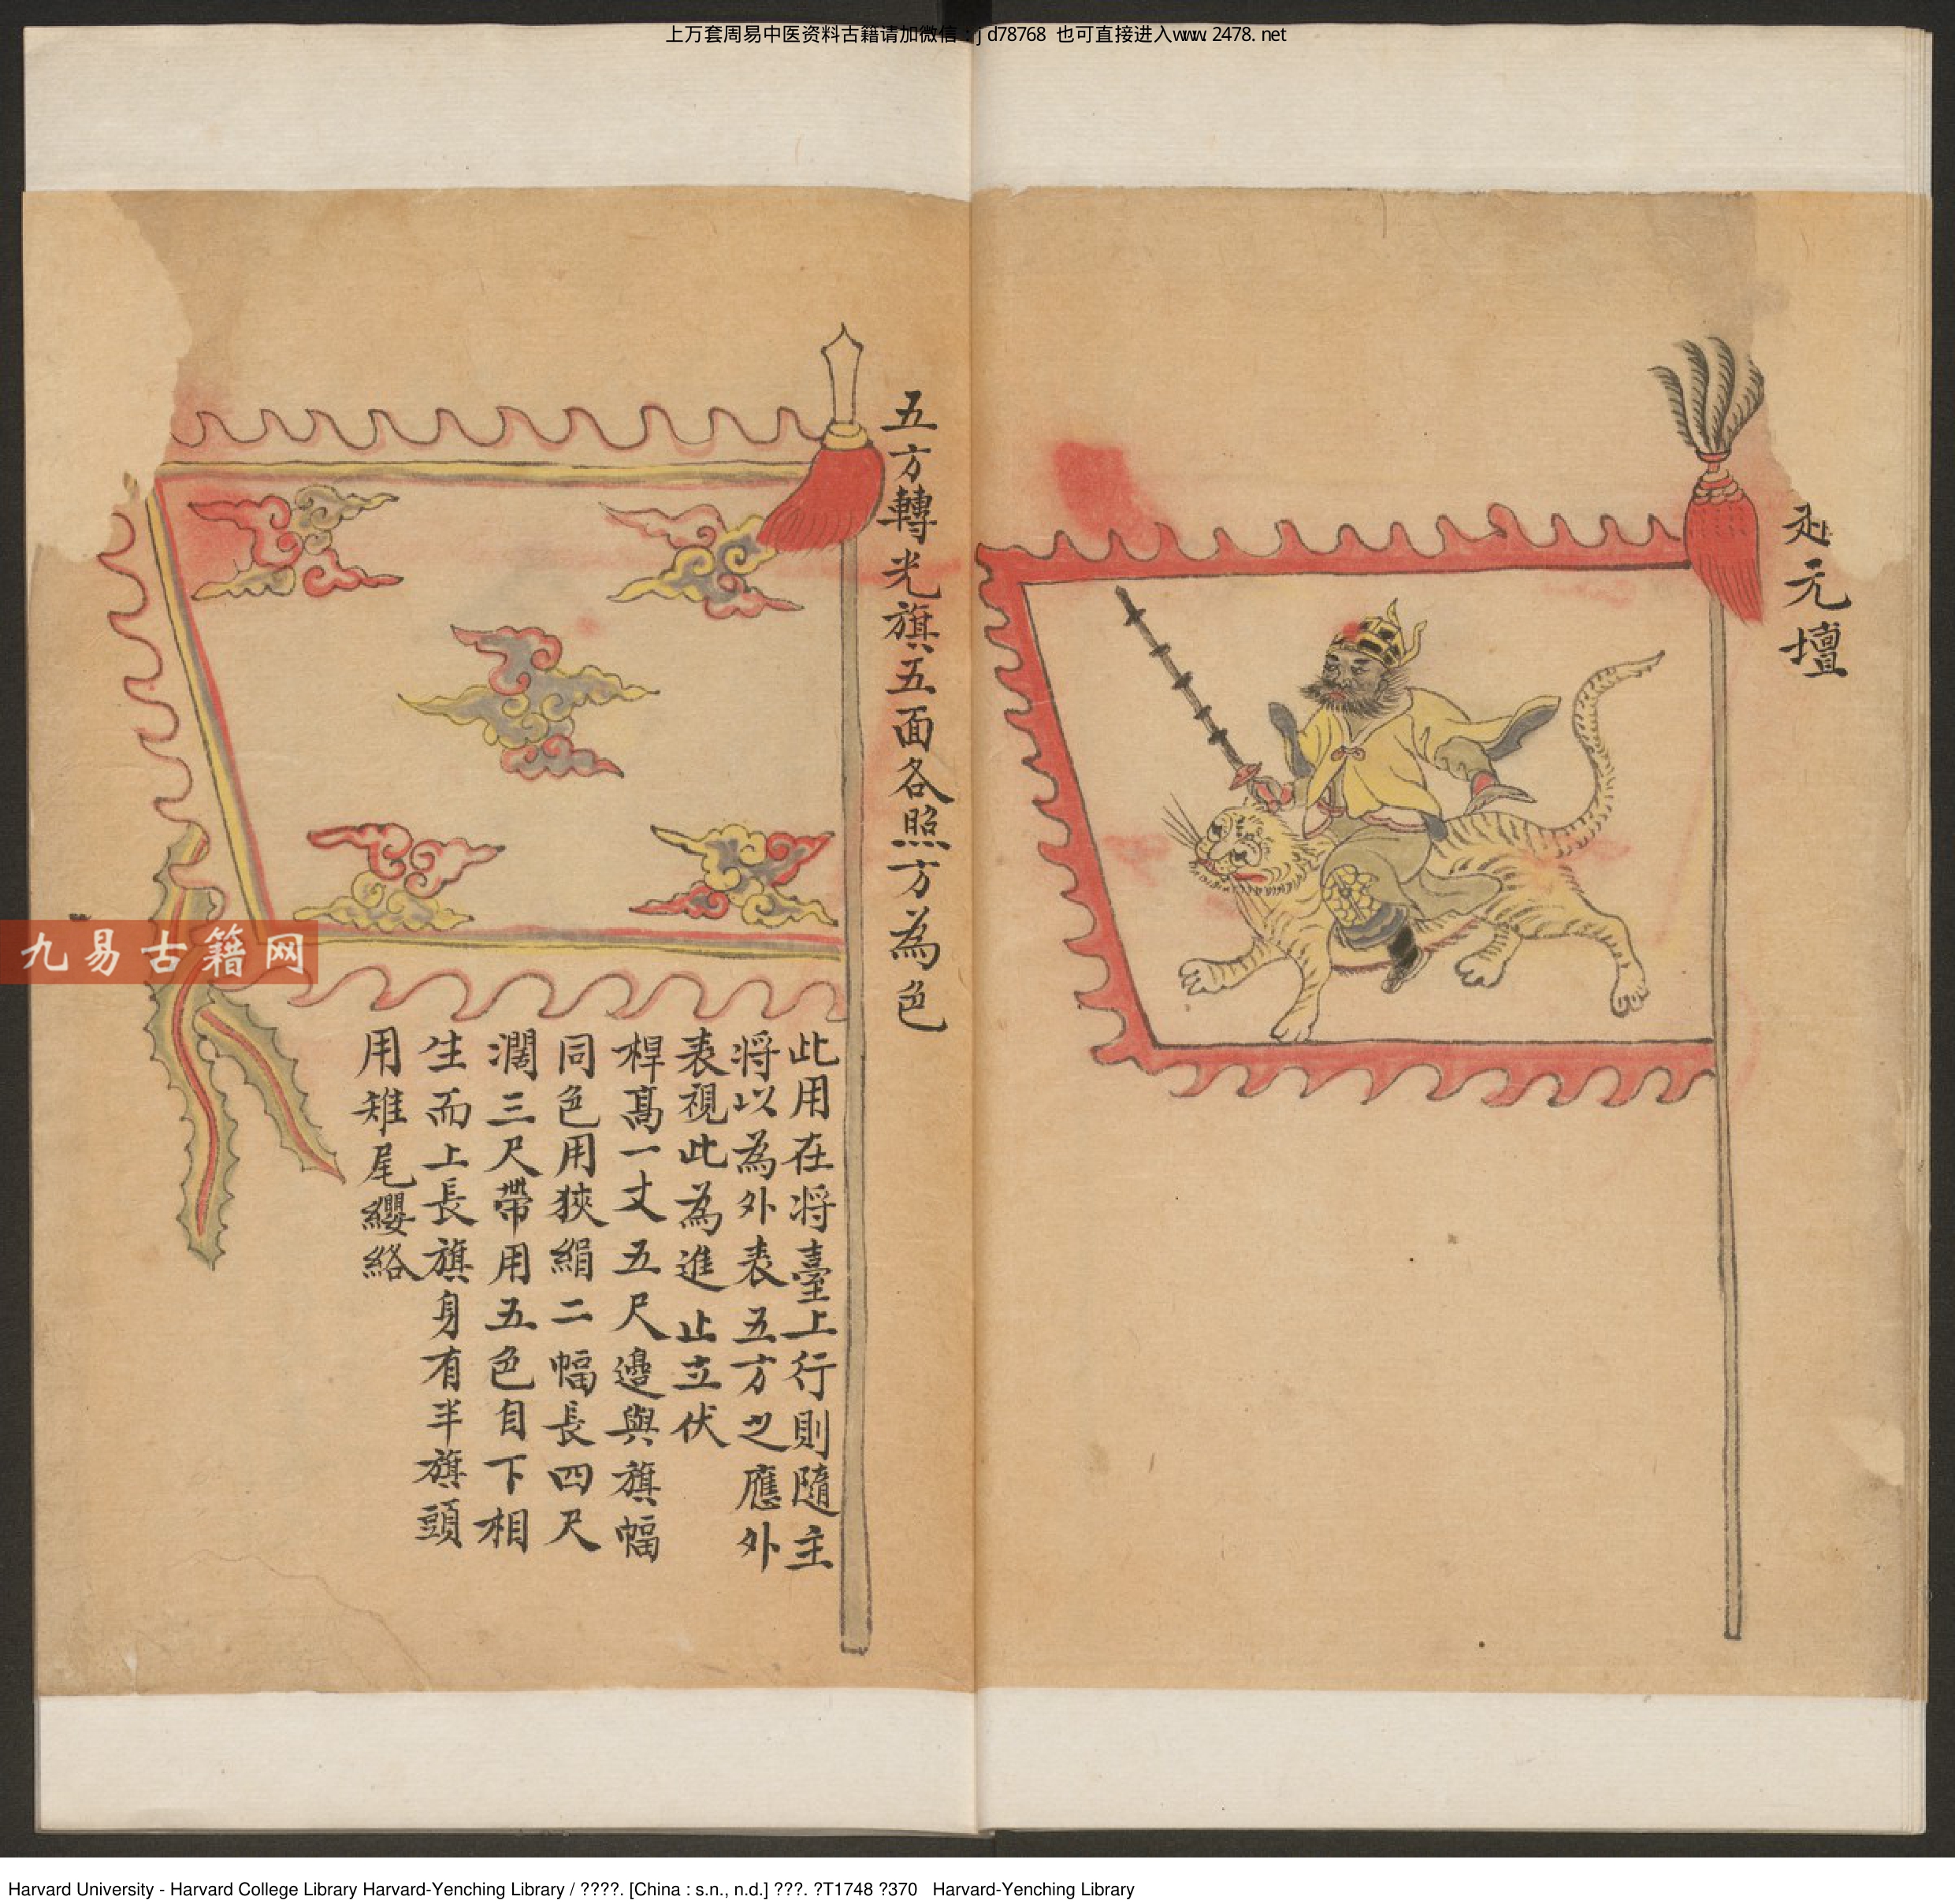 上万套周易中医资料古籍请加微信：jd78768 也可直接进入www.2478.net
元壇
五方轉光旗五面各照方為色
此用在将臺上行則隨主
将以為外表五方之應外
表視此為進止立伏
桿髙一丈五尺邊與旗幅
同色用狹絹二幅長四尺
濶三尺帶用五色自下相
生而上長旗身有半旗頭
用雉尾纓絡
九易古籍网
Harvard University - Harvard College Library Harvard-Yenching Library / ????. [China : s.n., n.d.] ???. ?T1748 ?370 Harvard-Yenching Library